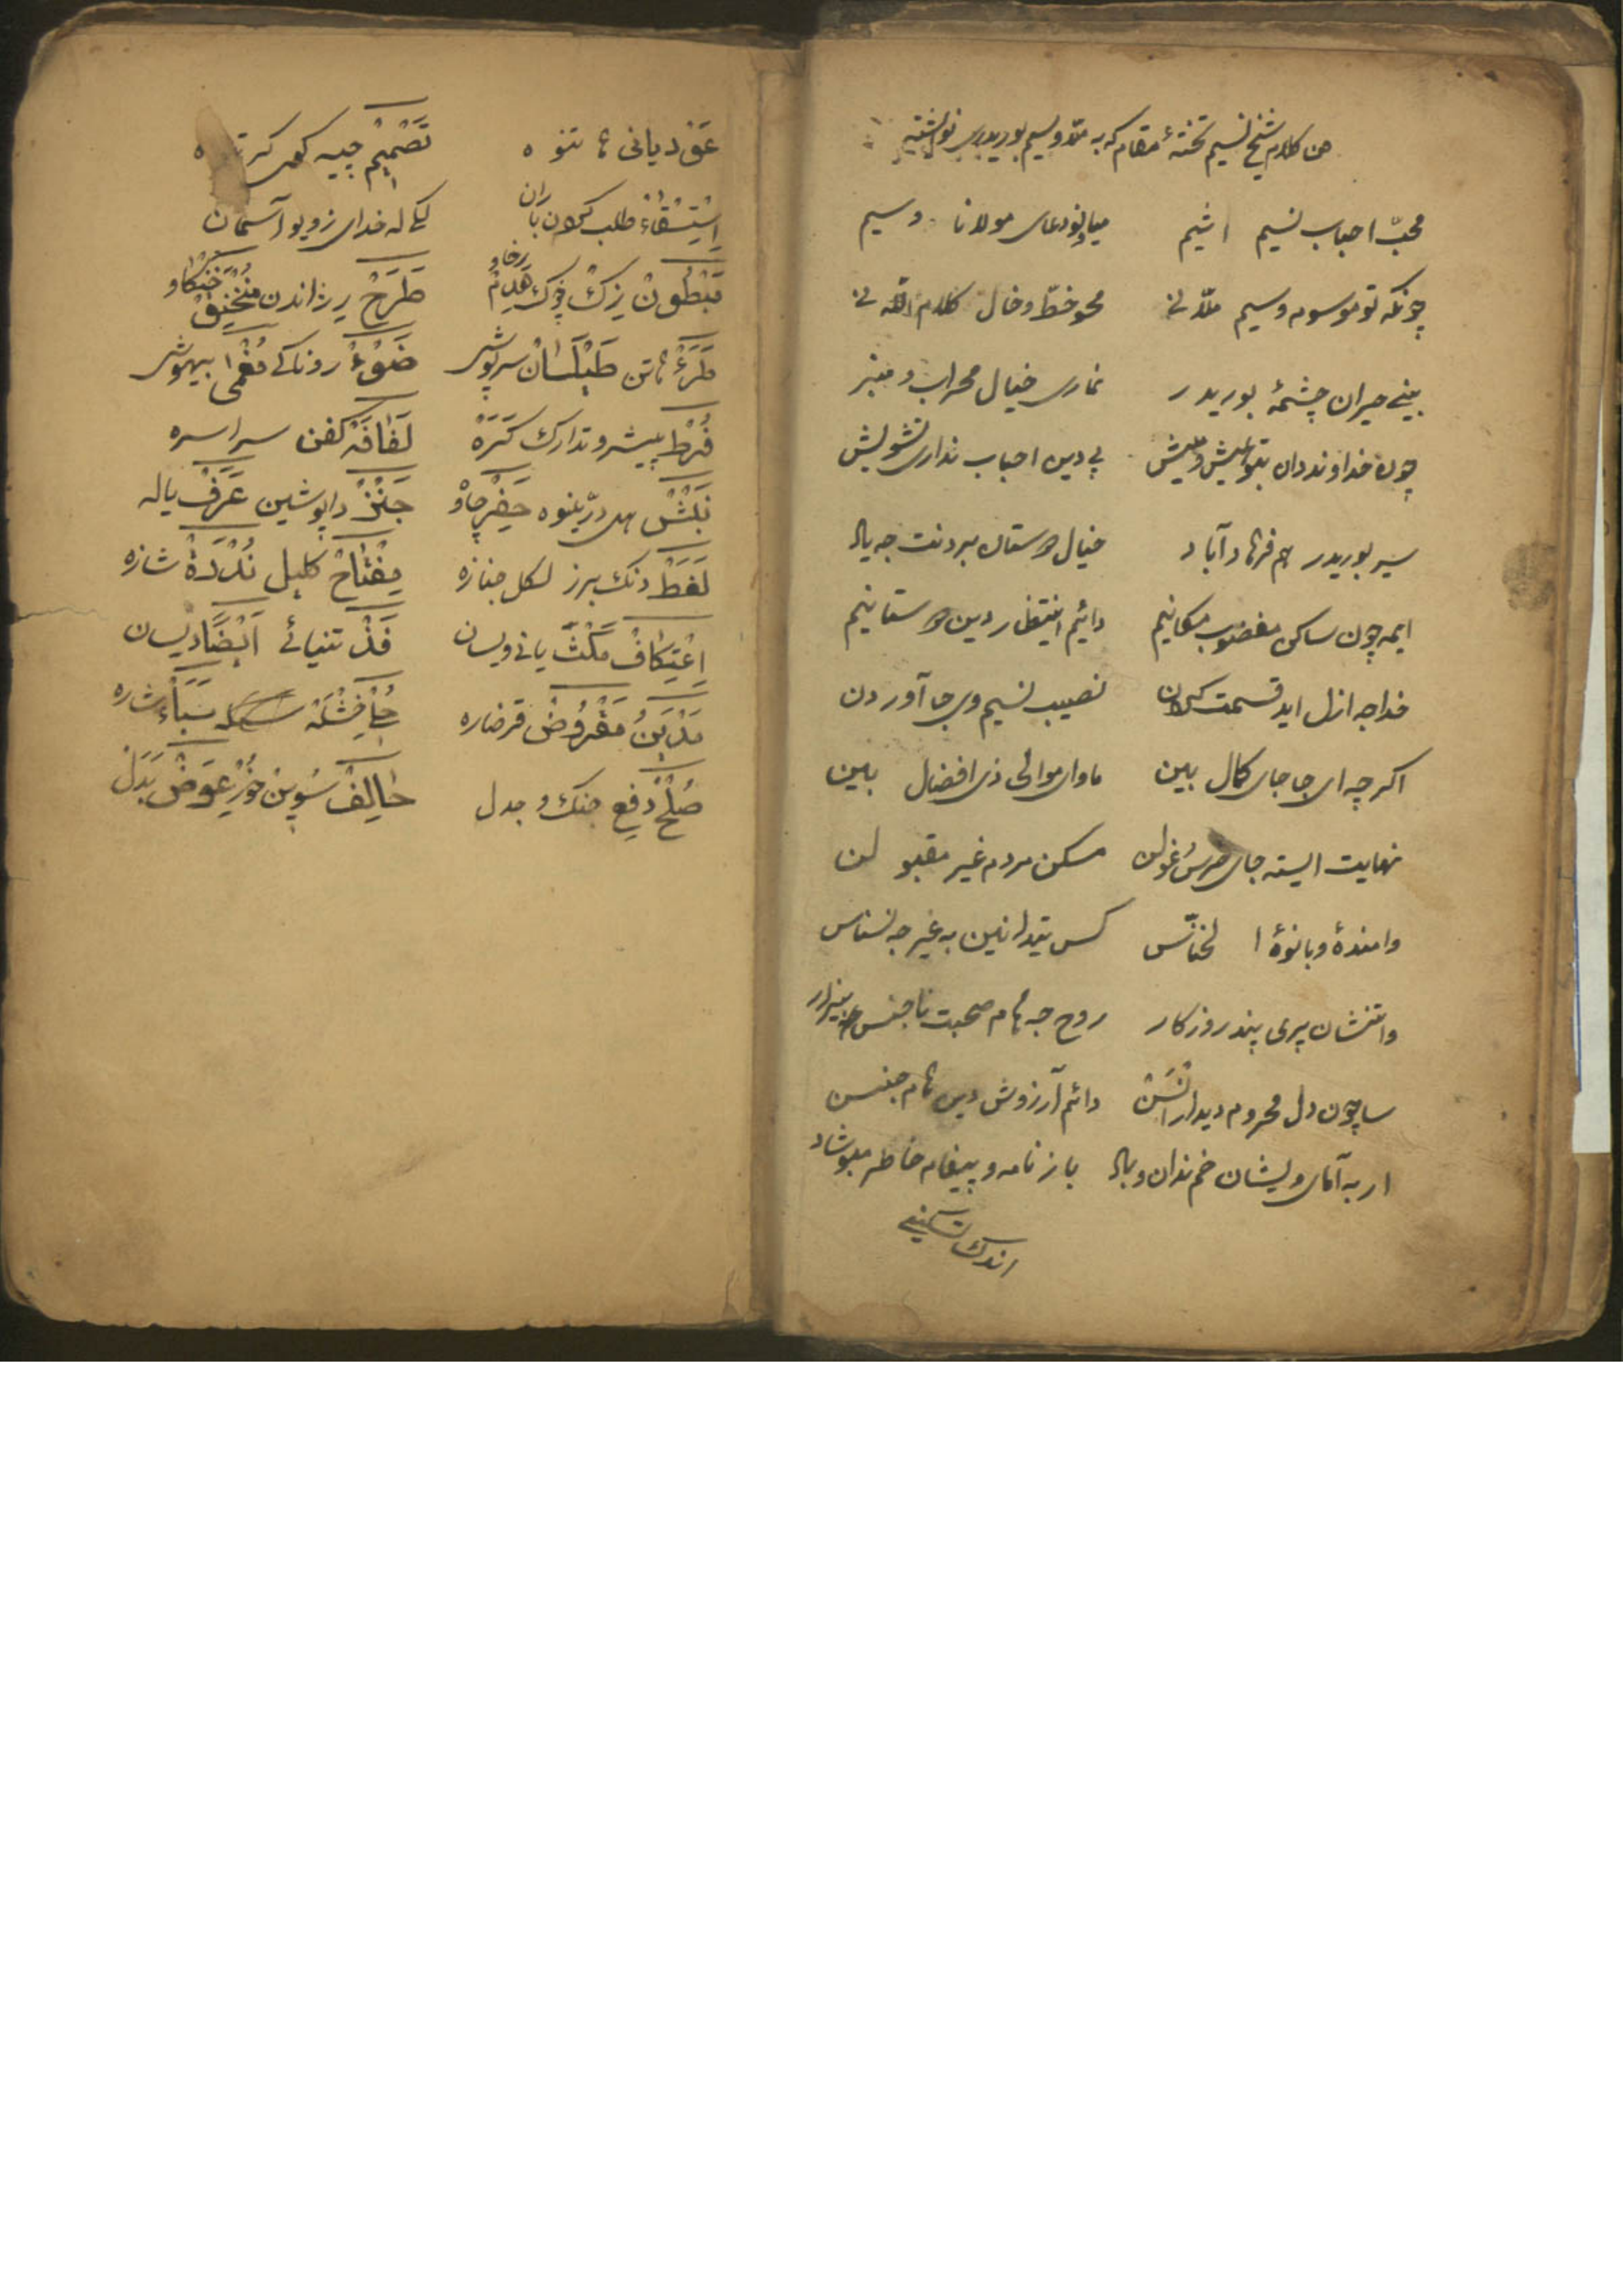 هن کلام شیخ نسیم تختهٔ مقام که به ملا وسیم بوریدری نوشتیه
محبّ احباب نسیم اشیم میاونو دعای مولانا وسیم
چونکه تو موسوم وسیم ملّانی محو خطّ و خال کلام اللّه نی
بینے حیران چشمهٔ بوریدر نماری خیال محراب و منبر
چون خداوند دان بتو عیش و میش پی دین احباب نداری تشویش
سیر بوریدر هم فرهاد آباد خیال دوستان بردنت جه یاد
ایمه چون ساکن مغضوب مکانیم دایم انتظار دین دوستانیم
خدا جه ازل اید قسمت کردن نصیب نسیم وی جا آوردن
اکرچه ای جا جای کمال بین ماوای موالی ذی افضال بین
نهایت ایسته جای خرس و غولن مسکن مردم غیر مقبولن
وامندهٔ وبانوهٔ الخنّاس کس نیدانین به غیر جه نسناس
وانتشان پری پند روزکار روح جه هام صحبت ناجنس بیزار
سا چون دل محروم دیدار انسن دائم آرزوش دین هام جنسن
ار به آمای ویشان خم ندان وباد با ز نامه و پیغام خاطر مبوشاد
اندک تسکینی
عَقّ دیانی هاتنوه تَصْمِیمْ جیبه کهی کر
اِسْتِسْقَاءْ طلب کردن باران لیکا له خدای زوی و آسمان
مَبْطُونْ زک چوک هَدِمْ رخاو طَرَحْ رژاندن مُنْخَنِقْ خنکاو
طَرَءْ هاتن طَیْلَسَانْ سرپوش ضَوْءْ روناکی مُغْمٰی بیهوش
فُرَطْ پیشرو تدارک کَرَّهْ لَفَافَهْ کفن سراسره
نَبْشْ هل دریّنوه حَضَرْ چاو جَنَزْ داپوشین عَرَفْ یاله
لَغَطْ دنک برز لکل جنازه مِفْتَاحْ کلیل نُدْرَةْ شازه
اِعْتِکَافْ مَکْثْ یانی ویسان فَذْ تنیائے اَیْضًا دیسان
مَدْیَنْ مَقْرُوضْ قرضاره سَبَاءْ شاره
صُلْحْ دفع جنک و جدل حَالِفْ سُوین خور عِوَضْ بَدَلْ